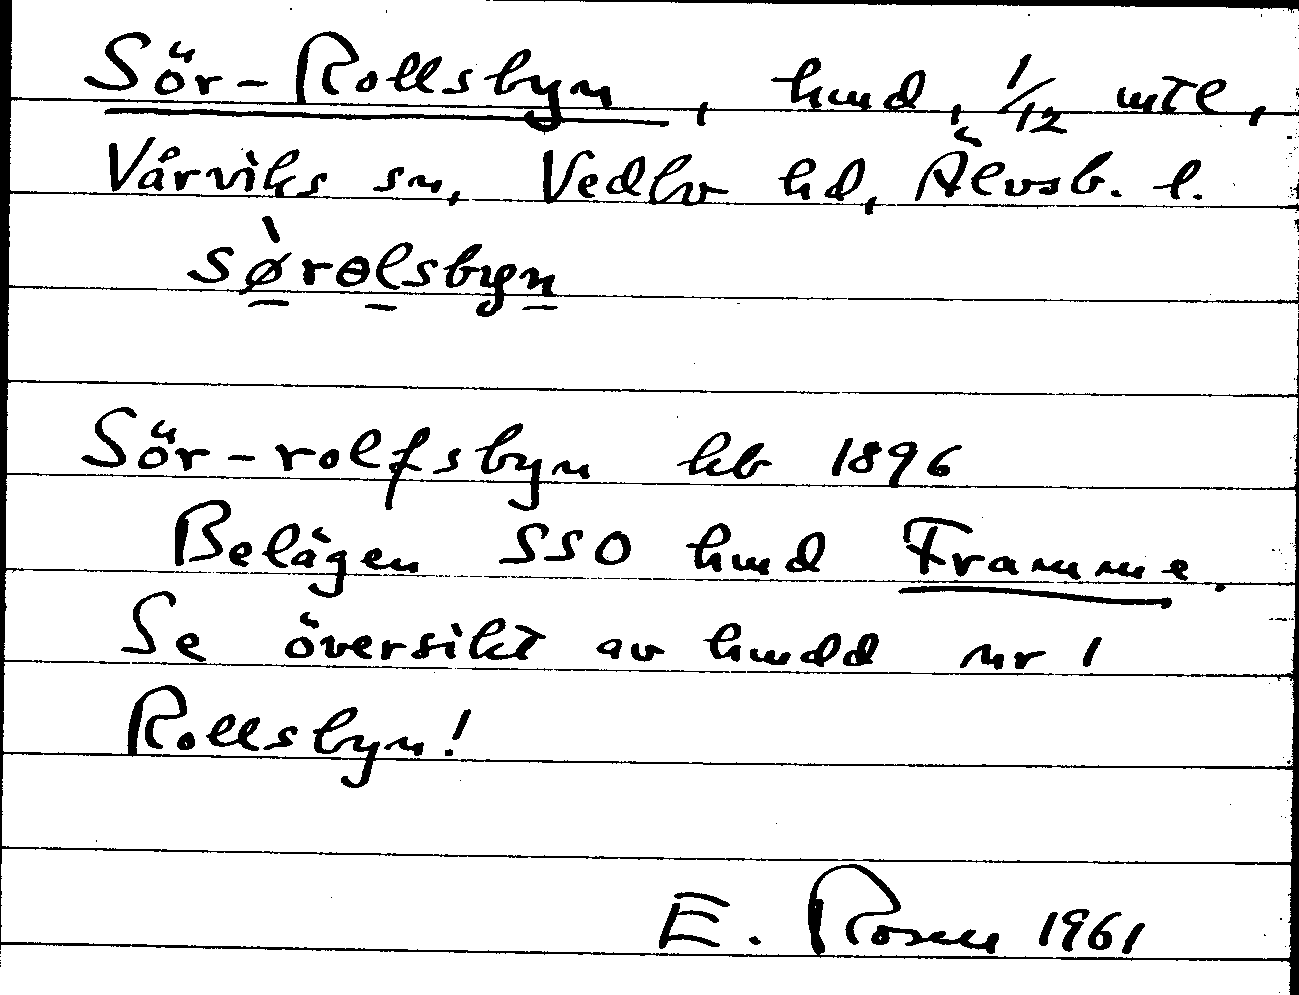 Sör-Rollsbyn, hmd, 1/12 mtl,
Vårviks sn, Vedbo hd, Älvsb. l.
sø̀rɵlsbyn
Sör-rolfsbyn kb 1896
Belägen SSO hmd Framme.
Se översikt av hmdd nr 1
Rollsbyn!
E. Rosen 1961